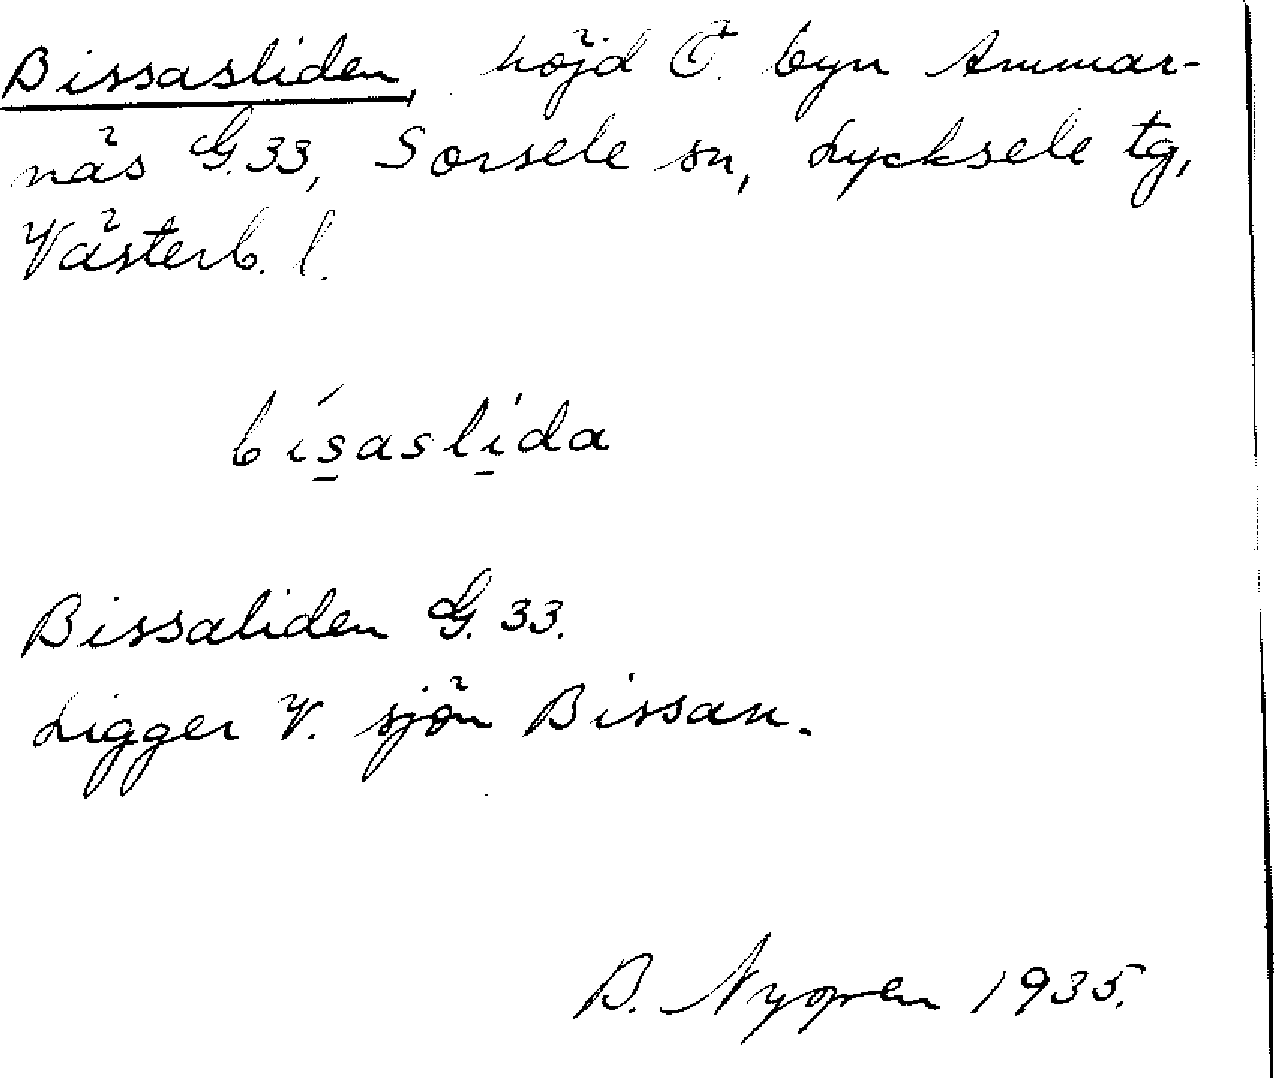 Bissasliden, höjd Ö. byn Ammar-
näs G.33, Sorsele sn, Lycksele tg,
Västerb. l.
bi´s̲asli̲da
Bissaliden G. 33.
Ligger V. sjön Bissan.
B. Nygren 1935.